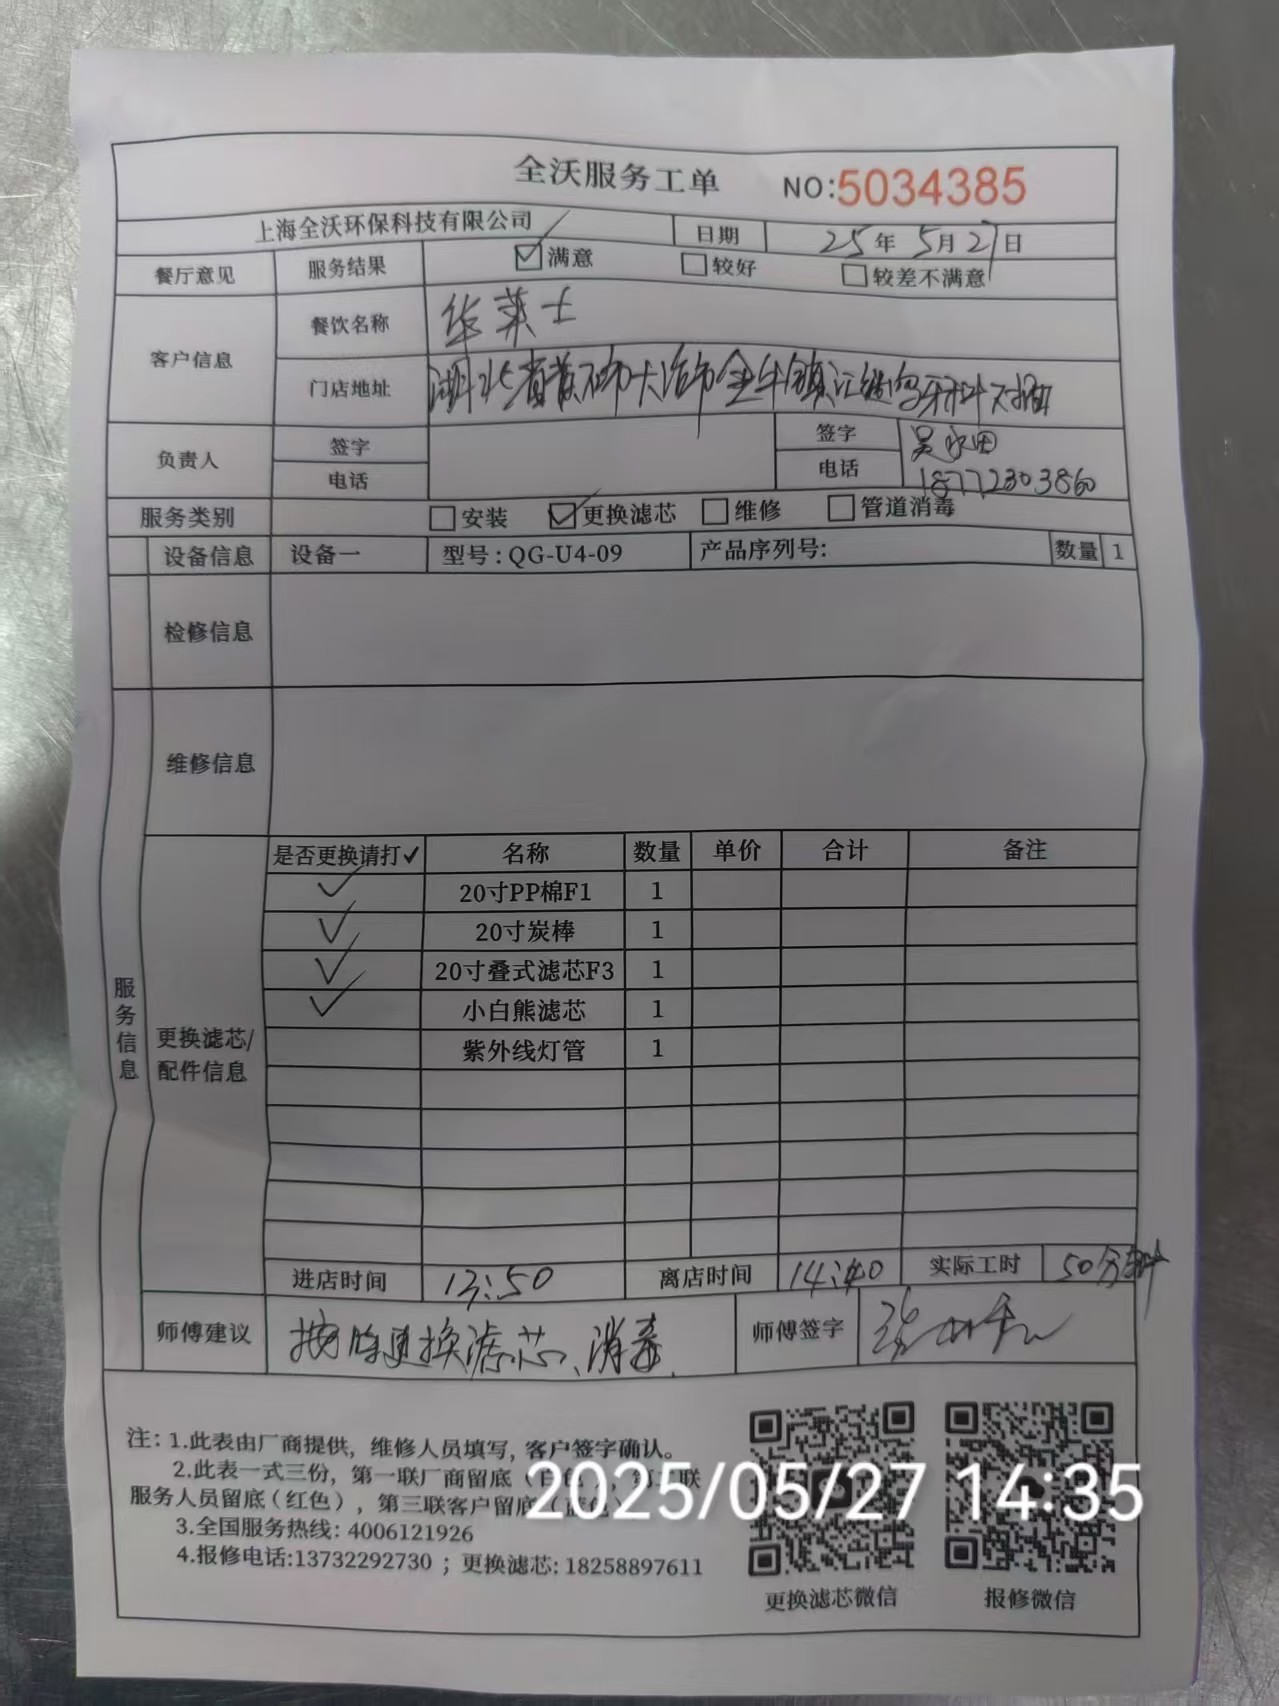 全沃服务工单 NO:5034385
上海全沃环保科技有限公司 日期 25年5月27日
餐厅意见 服务结果 ☑满意 □较好 □较差不满意
客户信息 餐饮名称 华莱士
门店地址 湖北省黄石市大冶市金牛镇
负责人 签字 签字
电话 电话 18772303860
服务类别 □安装 ☑更换滤芯 □维修 □管道消毒
设备信息 设备一 型号:QG-U4-09 产品序列号: 数量 1
检修信息
维修信息
服务信息
更换滤芯/配件信息
是否更换请打✓ 名称 数量 单价 合计 备注
✓ 20寸PP棉F1 1
✓ 20寸炭棒 1
✓ 20寸叠式滤芯F3 1
✓ 小白熊滤芯 1
紫外线灯管 1
进店时间 13:50 离店时间 14:40 实际工时 50分钟
师傅建议 按时更换滤芯、消毒. 师傅签字
注: 1.此表由厂商提供, 维修人员填写, 客户签字确认。
2.此表一式三份, 第一联厂商留底(白色), 第二联
服务人员留底(红色), 第三联客户留底(蓝色)
3.全国服务热线: 4006121926
4.报修电话:13732292730 ; 更换滤芯: 18258897611
更换滤芯微信 报修微信
2025/05/27 14:35